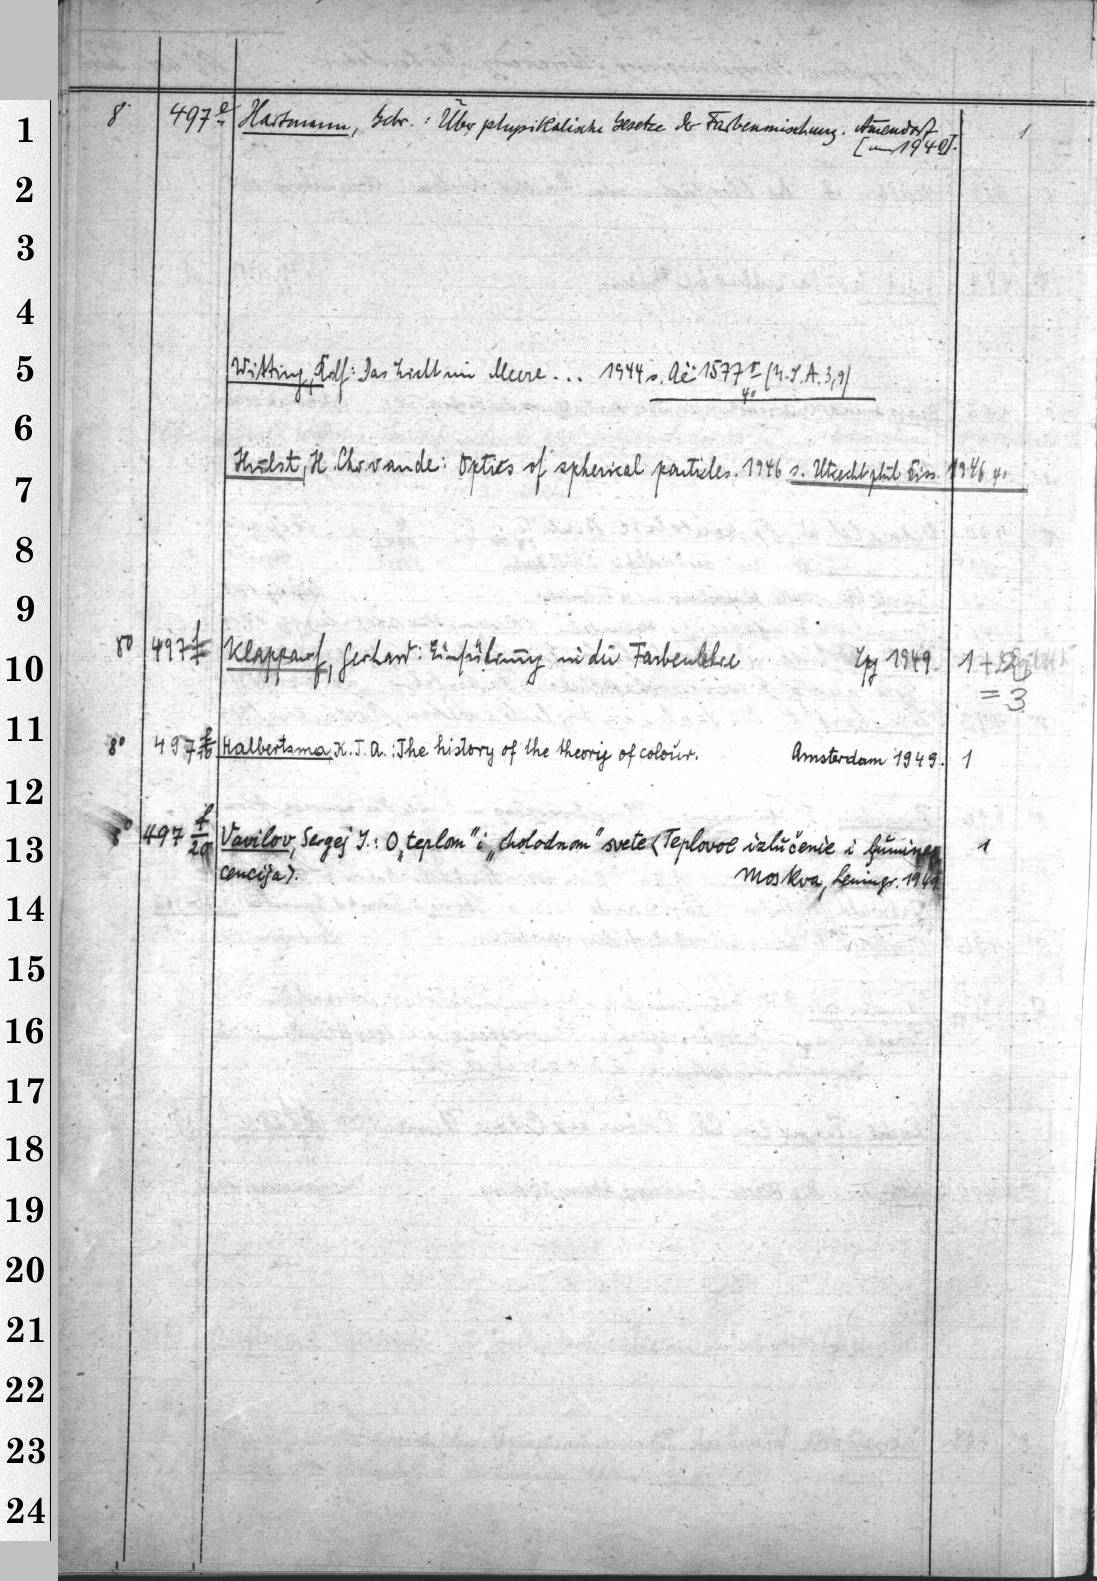 1
8° 497 e Hartmann, Gebr.: Über physikalische Gesetze der Farbenmischung. Ammendorf 1
[um 1940].
2
3
4
5
Witting, Rolf: Das Licht im Meere ... 1944 s. Ac 1577 4° (N.F.A.3,9)
6
Hulst, H. Chr. van de: Optics of spherical particles. 1946 s. Utrecht phil Diss. 1946 4°
7
8
9
10
8° 497 f Klappauf, Gerhard: Einführung in die Farbenlehre Lpz 1949. 1+2
= 3
11
8° 497 f/10 Halbertsma, K.T.A.: The history of the theorie of colour. Amsterdam 1949. 1
12
13
8° 497 f/20 Vavilov, Sergej I.: O „teplom" i „cholodnom" svete (Teplovoe izlučenie i ljumines 1
cencija). Moskva, Leningr. 1949
14
15
16
17
18
19
20
21
22
23
24